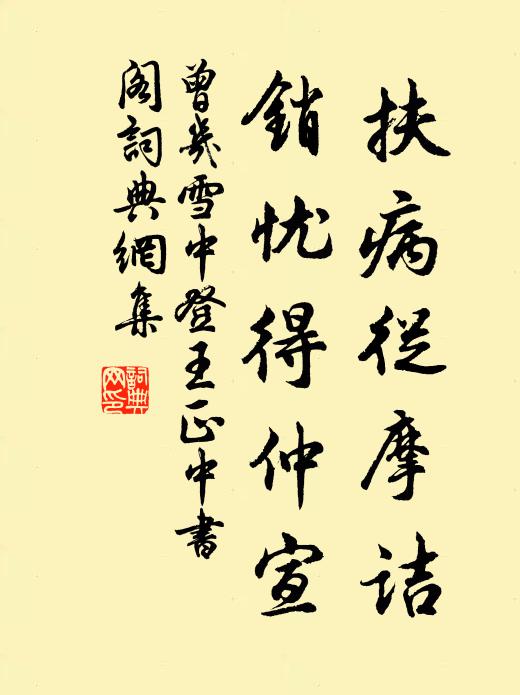 扶病從摩詰
銷忧得仲宣
曾幾雪中登王正中書
閣詞典網集
詞典網印